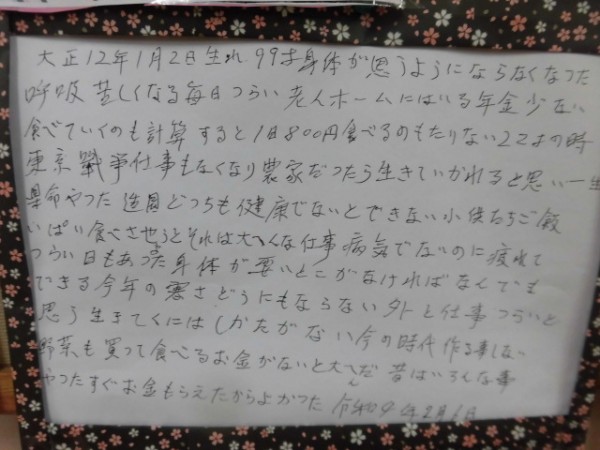 大正12年1月2日生れ 99才身体が思うようにならなくなつた
呼吸苦しくなる毎日つらい 老人ホームにはいる年金少ない
食べていくのも計算すると1日800円食べるのもたりない22才の時
東京戦争仕事もなくなり農家だつたら生きていかれると思い一生
県命やつた どつちも健康でないとできない小供たちご飯
いぱい食べさせようとそれは大へんな仕事病気でないのに疲れて
つらい日もあつた身体が悪いとこがなければなんでも
できる今年の寒さどうにもならない外と仕事つらいと
思う生きてくにはしかたがない今の時代作る事しない
野菜も買って食べるお金がないと大へんだ 昔はいろんな事
やつたすぐお金もらえたからよかつた 令和4年2月6日